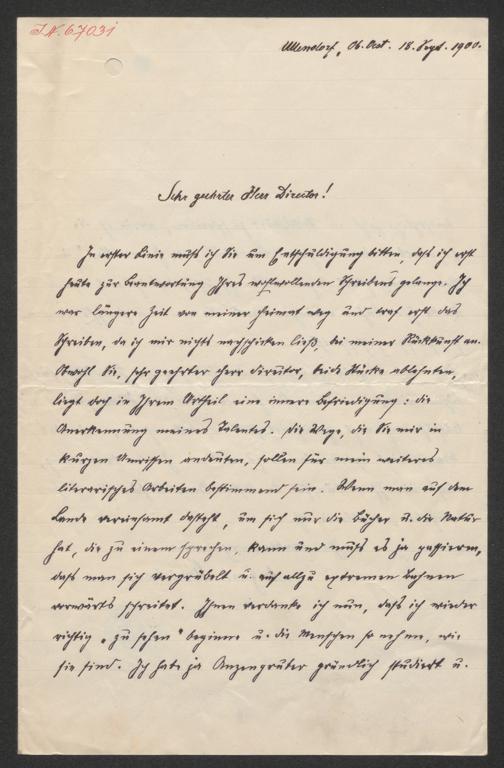 I.N. 67031
Ullendorf, Ob. Oest. 18. Sept. 1900.
Sehr geehrter Herr Director!
In erster Linie muß ich Sie um Entschuldigung bitten, daß ich erst
heute zur Beantwortung Ihres wohlwollenden Schreibens gelange. Ich
war längere Zeit von meiner Heimat weg und traf erst das
Schreiben, da ich mir nichts nachschicken ließ, bei meiner Rückkunft an.
Obwohl Sie, sehr geehrter Herr Director, beide Stücke ablehnten,
liegt doch in Ihrem Urtheil eine innere Befriedigung: die
Anerkennung meines Talentes. Die Wege, die Sie mir in
kurzen Umrissen andeuten, sollen für mein weiteres
literarisches Arbeiten bestimmend sein. Wenn man auf dem
Lande vereinsamt dasteht, um sich nur die Bücher u. die Natur
hat, die zu einem sprechen, kann und muß es ja passieren,
daß man sich vergrübelt u. auf allzu extremen Bahnen
vorwärts schreitet. Ihnen verdanke ich nun, daß ich wieder
richtig „zu sehen" beginne u. die Menschen so nehme, wie
sie sind. Ich habe ja Anzengruber gründlich studiert u.